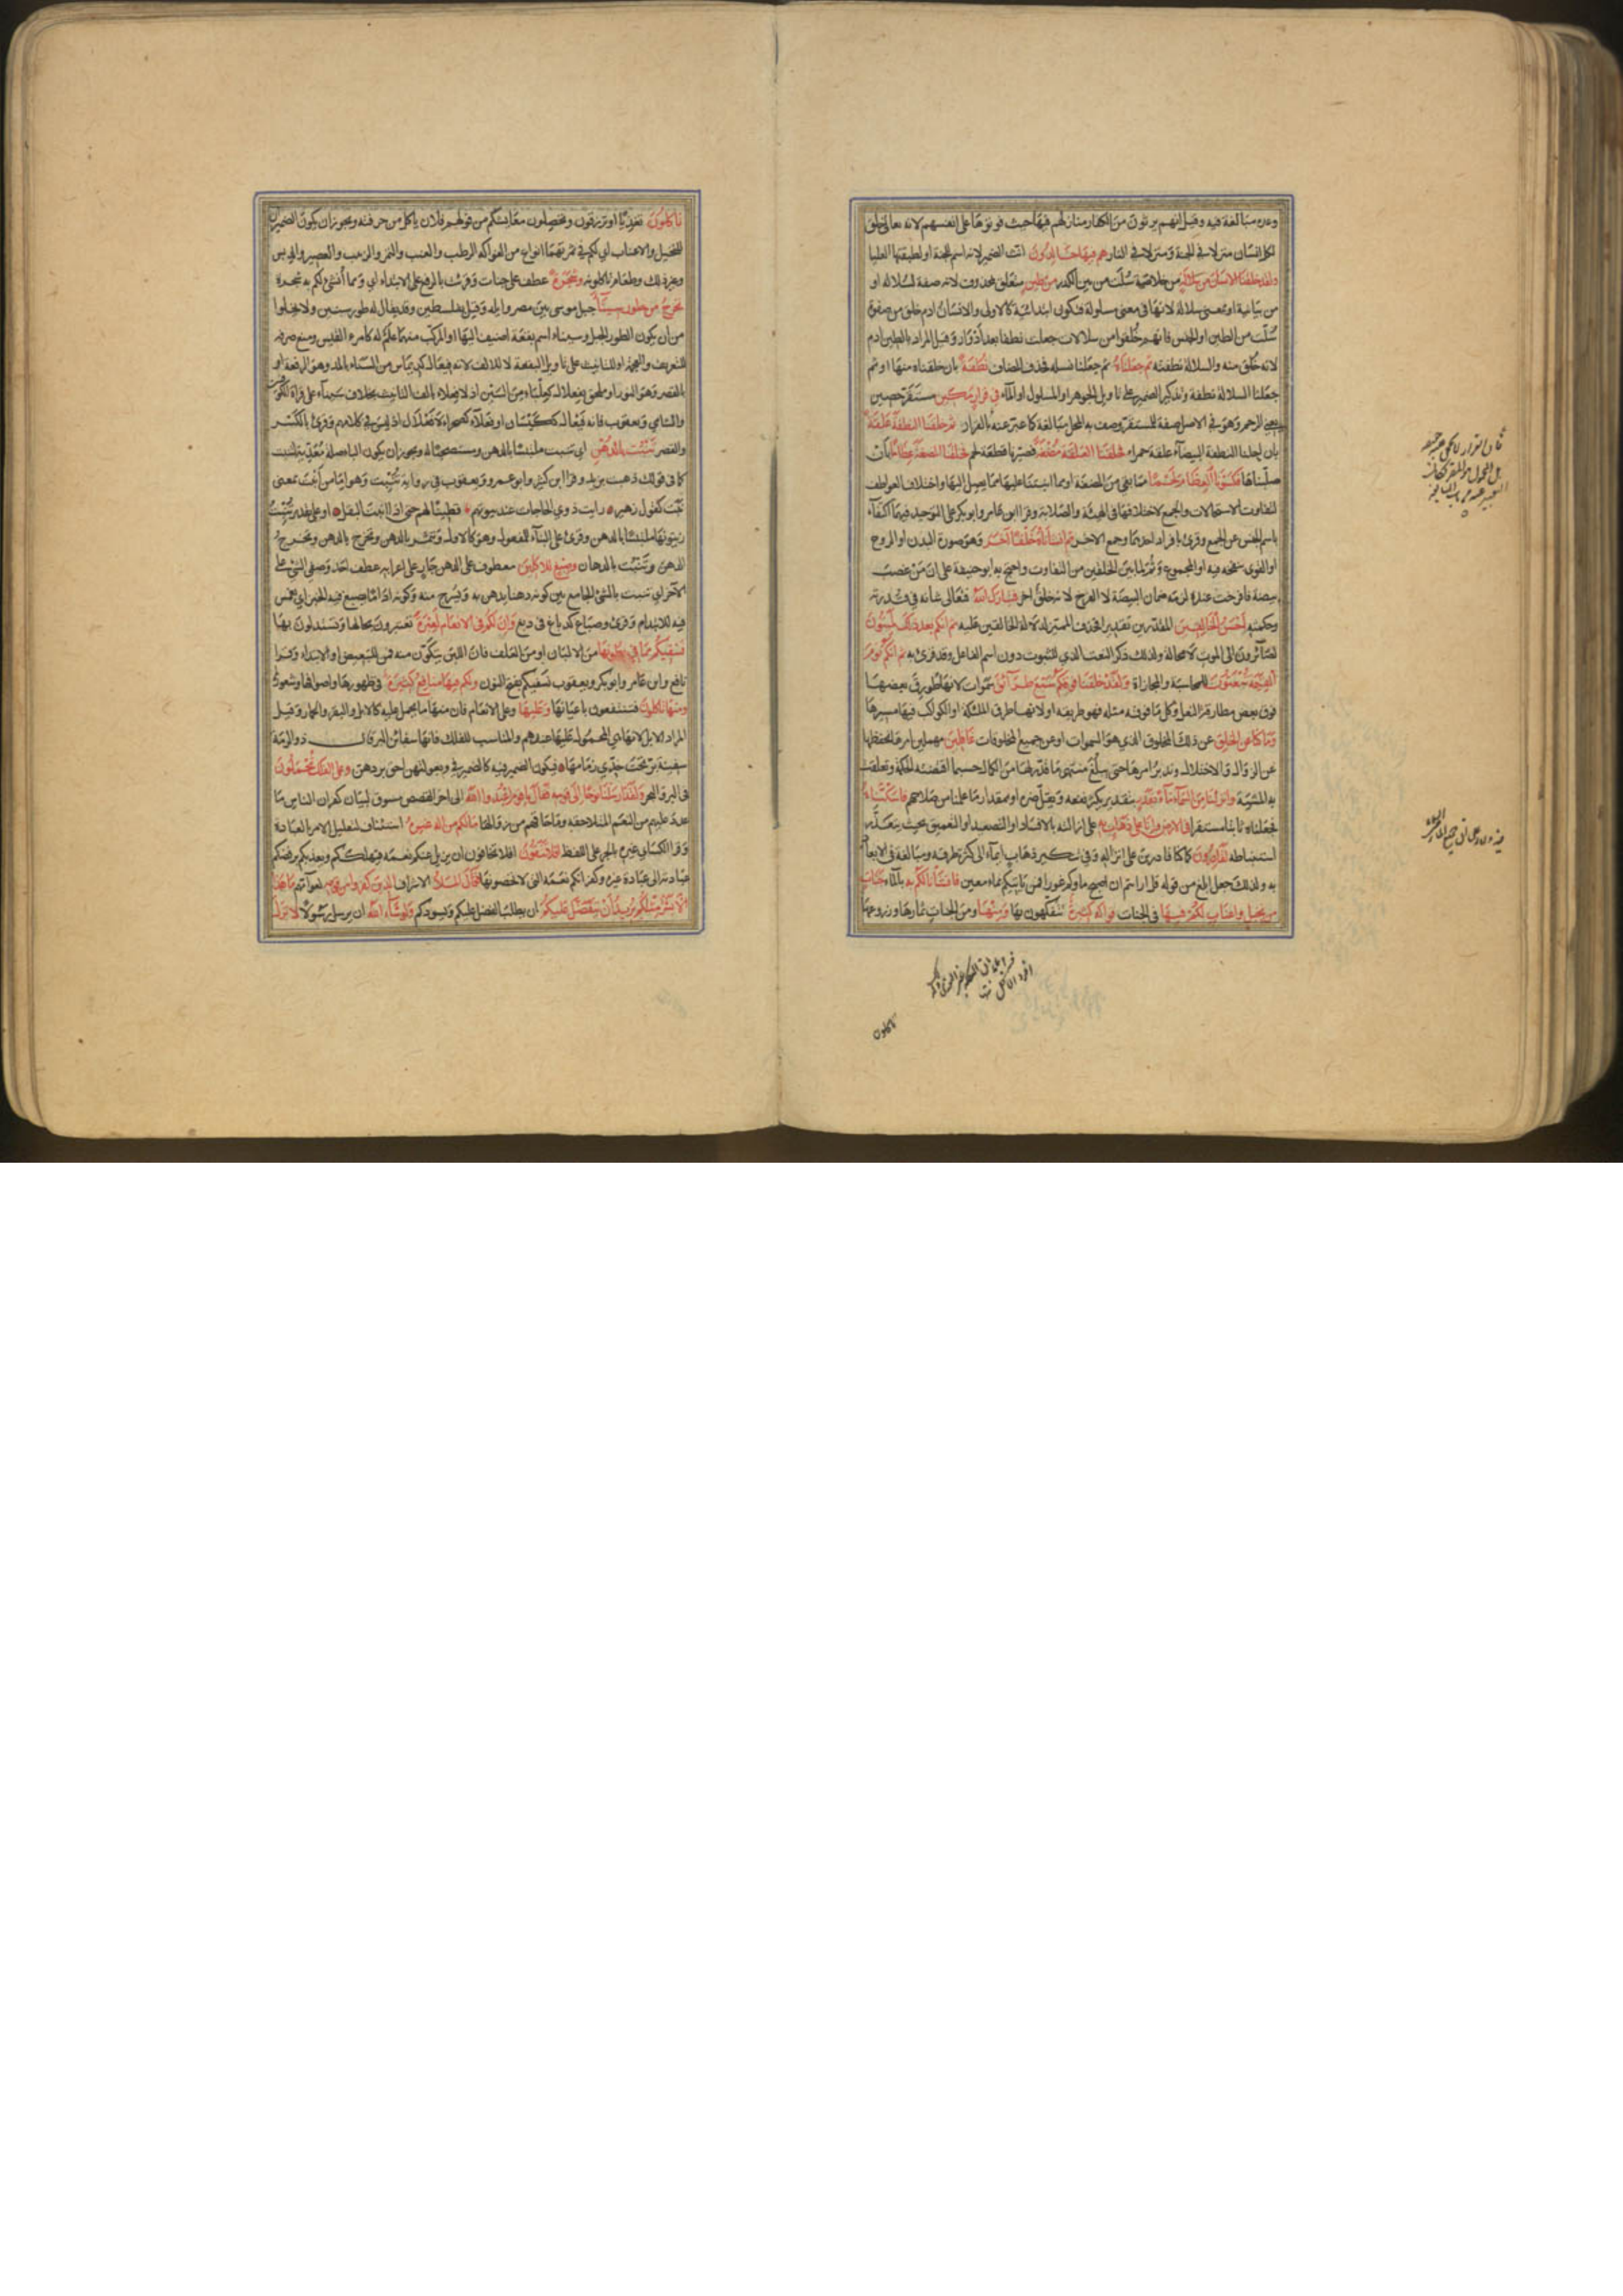 وعده مبالغة فيه وقيل انهم يرثون من الكفار منازلهم فيها حيث فوتوها على انفسهم لانه تعالى خلق
لكل انسان منزلا في الجنة ومنزلا في النار هم فيها خالدون انث الضمير لانه اسم للجنة او لطبقتها العليا
ولقد خلقنا الانسان من سلالة من خلاصة سلت من بين الكدر من طين متعلق بمحذوف لانه صفة لسلالة او
من بيانية او بمعنى سلالة لانها في معنى مسلولة فتكون ابتدائية كالاولى والانسان ادم خلق من صفوة
سلت من الطين او الجنس فانهم خلقوا من سلالات جعلت نطفا بعد ادوار وقيل المراد بالطين ادم
لانه خلق منه والسلالة نطفته ثم جعلناه ثم جعلنا نسله فحذف المضاف نطفة بان خلقناه منها او ثم
جعلنا السلالة نطفة وتذكير الضمير على تاويل الجوهر او المسلول او الماء في قرار مكين مستقر حصين
يعني الرحم وهو في الاصل صفة للمستقر وصف به المحل مبالغة كما عبر عنه بالقرار ثم خلقنا النطفة علقة
بان احلنا النطفة البيضاء علقة حمراء فخلقنا العلقة مضغة فصيرناها قطعة لحم فخلقنا المضغة عظاما بان
صلبناها فكسونا العظام لحما مما بقي من المضغة او مما انبتنا عليها مما يصل اليها واختلاف العواطف
لتفاوت الاستحالات والجمع لاختلافها في الهيئة والصلابة وقرا ابن عامر وابو بكر على التوحيد فيهما اكتفاء
باسم الجنس عن الجمع وقرئ بافراد احدهما وجمع الاخر ثم انشاناه خلقا آخر وهو صورة البدن او الروح
او القوى بنفخه فيه او المجموع وثم لما بين الخلقين من التفاوت واحتج به ابو حنيفة على ان من غصب
بيضة فافرخت عنده لزمه ضمان البيضة لا الفرخ لانه خلق اخر فتبارك الله فتعالى شانه في قدرته
وحكمته احسن الخالقين المقدرين تقديرا فحذف المميز لدلالة الخالقين عليه ثم انكم بعد ذلك لميتون
لصائرون الى الموت لا محالة ولذلك ذكر النعت الذي للثبوت دون اسم الفاعل وقد قرئ به ثم انكم يوم
القيمة تبعثون للمحاسبة والمجازاة ولقد خلقنا فوقكم سبع طرائق سموات لانها طورق بعضها
فوق بعض مطارقة النعل وكل ما فوقه مثله فهو طريقه او لانها طرق الملئكة او الكواكب فيها مسيرها
وما كنا عن الخلق عن ذلك المخلوق الذي هو السموات او عن جميع المخلوقات غافلين مهملين امرها بل نحفظها
عن الزوال والاختلال وندبر امرها حتى يبلغ منتهى ما قدر لها من الكمال حسبما اقتضته الحكمة وتعلقت
به المشيئة وانزلنا من السماء ماء بقدر بتقدير يكثر نفعه ويقل ضره او بمقدار ما علمنا من صلاحهم فاسكناه
فجعلناه ثابتا مستقرا في الارض وانا على ذهاب به على ازالته بالافساد او التصعيد او التعميق بحيث يتعذر
استنباطه لقادرون كما كنا قادرين على انزاله وفي تنكير ذهاب ايماء الى كثرة طرقه ومبالغة في الايعاد
به ولذلك جعل ابلغ من قوله قل ارايتم ان اصبح ماؤكم غورا فمن ياتيكم بماء معين فانشانا لكم به بالماء جنات
من نخيل واعناب لكم فيها في الجنات فواكه كثيرة تتفكهون بها ومنها ومن الجنات ثمارها وزروعها
تاكلون
تاكلون تغذيا او ترزقون وتحصلون معايشكم من قولهم فلان ياكل من حرفته ويجوز ان يكون الضميران
للنخيل والاعناب اي لكم في ثمرتهما انواع من الفواكه الرطب والعنب والتمر والزبيب والعصير والدبس
وغير ذلك وطعام تاكلونه وشجرة عطف على جنات وقرئت بالرفع على الابتداء اي ومما انشئ لكم به شجرة
تخرج من طور سيناء جبل موسى بين مصر وايلة وقيل بفلسطين وقد يقال له طور سينين ولا يخلوا
من ان يكون الطور للجبل وسيناء اسم بقعة اضيف اليها او المركب منهما علم له كامرء القيس ومنع صرفه
للتعريف والعجمة او للتانيث على تاويل البقعة لا للالف لانه فيعال كديماس من السناء بالمد وهو الرفعة او
بالقصر وهو النور او ملحق بفعلال كعلباء من السين اذ لا فعلاء بالف التانيث بخلاف سيناء على قراة الكوفيين
والشامي ويعقوب فانه فيعال ككيسان او فعلاء كصحراء لا فعلال اذ ليس في كلامهم وقرئ بالكسر
والقصر تنبت بالدهن اي تنبت ملتبسا بالدهن ومستصحبا له ويجوز ان يكون الباء صلة معدية لتنبت
كما في قولك ذهبت بزيد وقرا ابن كثير وابو عمرو ويعقوب في رواية تنبت وهو اما من انبت بمعنى
نبت كقول زهير رايت ذوي الحاجات عند بيوتهم قطينا لهم حتى اذا انبت البقل او على تقدير تنبت
زيتونها ملتبسا بالدهن وقرئ على البناء للمفعول وهو كالاول وتثمر بالدهن وتخرج بالدهن وتخرج
الدهن وتنبت بالدهان وصبغ للاكلين معطوف على الدهن جار على اعرابه عطف احد وصفي الشئ على
الاخر اي تنبت بالشئ الجامع بين كونه دهنا يدهن به ويسرج منه وكونه اداما يصبغ فيه الخبز اي يغمس
فيه للايتدام وقرئ وصباغ كدباغ في دبغ وان لكم في الانعام لعبرة تعتبرون بحالها وتستدلون بها
نسقيكم مما في بطونها من الالبان او من العلف فان اللبن يتكون منه فمن للتبعيض او الابتداء وقرا
نافع وابن عامر وابو بكر ويعقوب نسقيكم بفتح النون ولكم فيها منافع كثيرة في ظهورها واصوافها وشعورها
ومنها تاكلون فتنتفعون باعيانها وعليها وعلى الانعام فان منها ما يحمل عليه كالابل والبقر والحمار وقيل
المراد الابل لانها هي المحمول عليها عندهم والمناسب للفلك فانها سفائن البر قال ذو الرمة
سفينة بر تحت خدي زمامها فيكون الضمير فيه كالضمير في وبعولتهن احق بردهن وعلى الفلك تحملون
في البر والبحر ولقد ارسلنا نوحا الى قومه فقال يا قوم اعبدوا الله الى اخر القصص مسوق لبيان كفران الناس ما
عدد عليهم من النعم المتلاحقة وما حاقهم من زوالها ما لكم من اله غيره استئناف لتعليل الامر بالعبادة
وقرا الكسائي غيره بالجر على اللفظ افلا تتقون افلا تخافون ان يزيل عنكم نعمه فيهلككم ويعذبكم برفضكم
عبادته الى عبادة غيره وكفرانكم نعمه التي لا تحصونها فقال الملأ الاشراف الذين كفروا من قومه لعوامهم ما هذا
الا بشر مثلكم يريد ان يتفضل عليكم ان يطلب الفضل عليكم ويسودكم ولو شاء الله ان يرسل رسولا لانزل